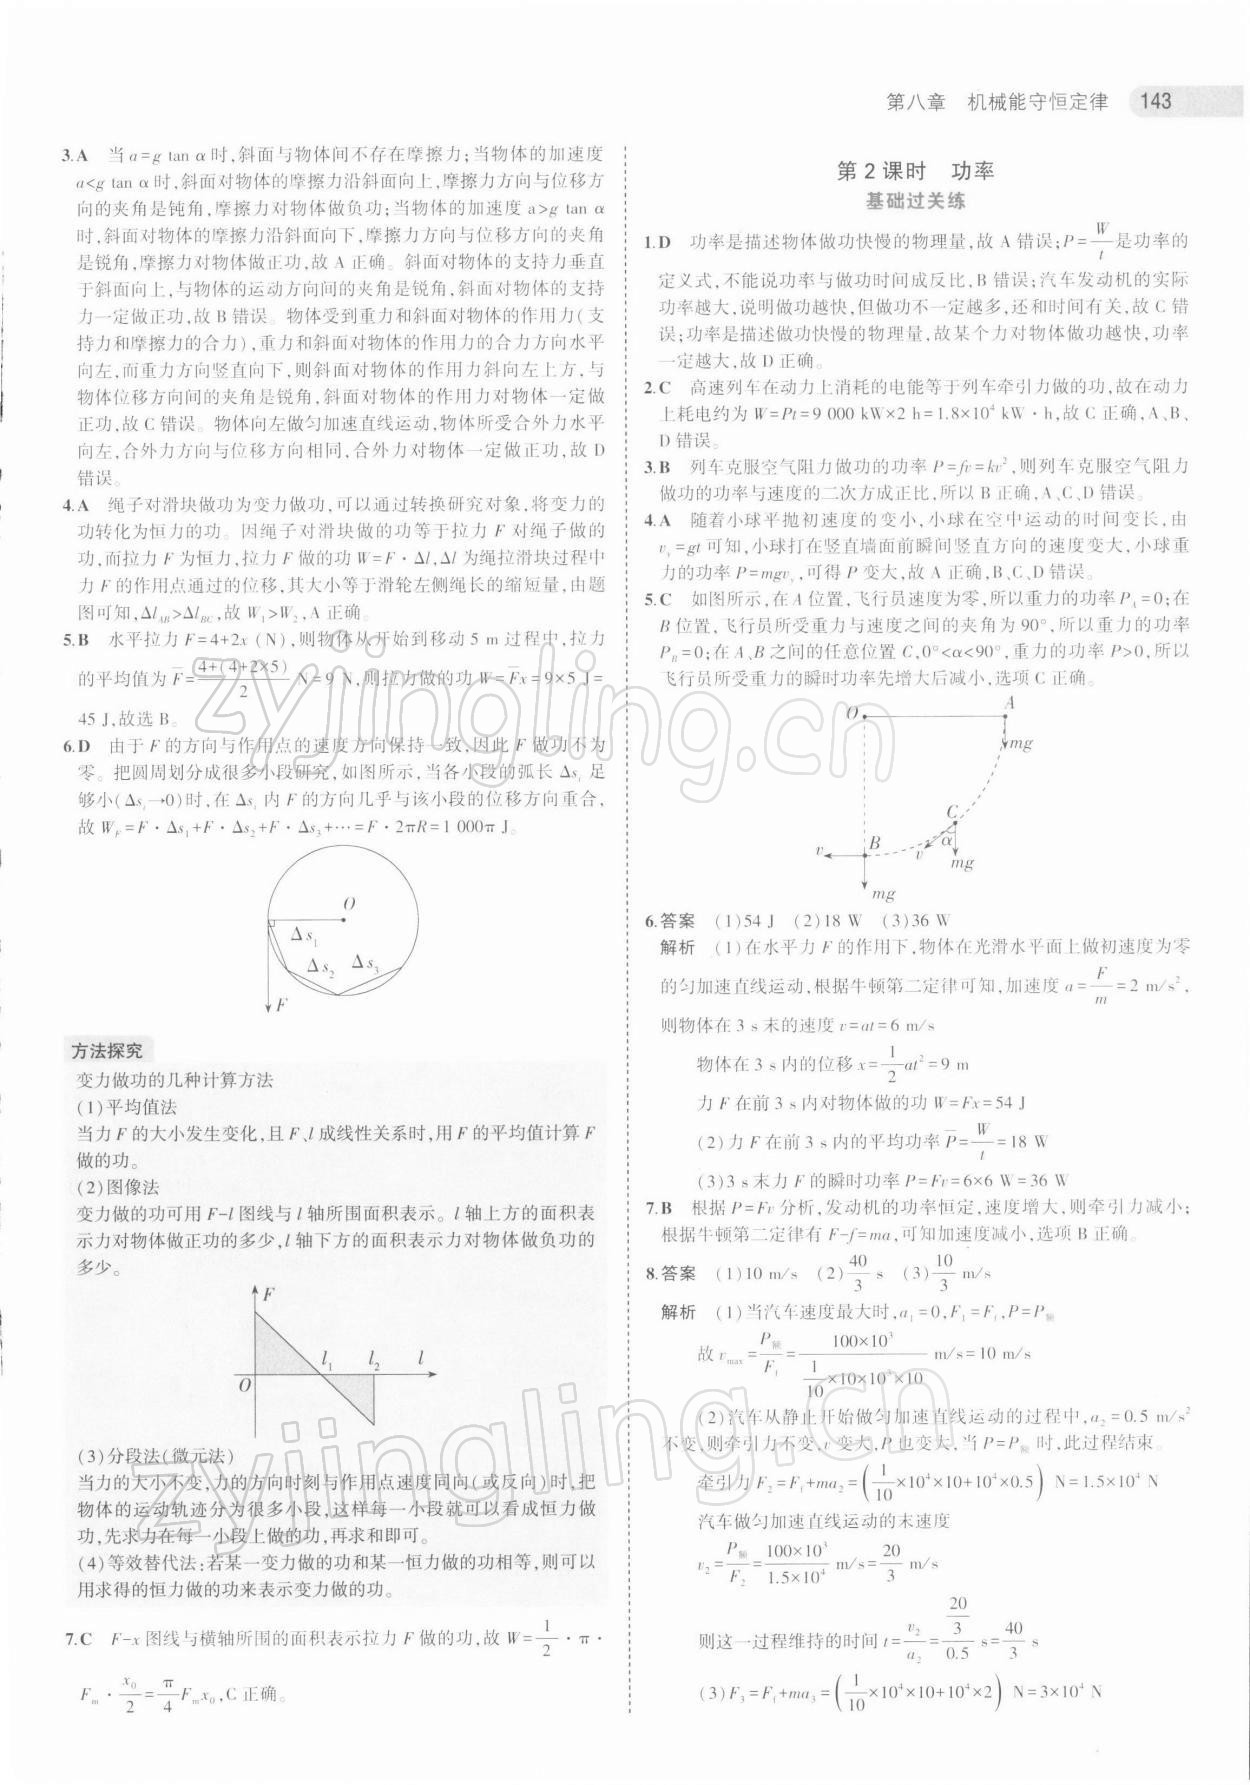 第八章 机械能守恒定律 143
3.A 当 a=g tan α 时,斜面与物体间不存在摩擦力;当物体的加速度
a<g tan α 时,斜面对物体的摩擦力沿斜面向上,摩擦力方向与位移方
向的夹角是钝角,摩擦力对物体做负功;当物体的加速度 a>g tan α
时,斜面对物体的摩擦力沿斜面向下,摩擦力方向与位移方向的夹角
是锐角,摩擦力对物体做正功,故 A 正确。斜面对物体的支持力垂直
于斜面向上,与物体的运动方向间的夹角是锐角,斜面对物体的支持
力一定做正功,故 B 错误。物体受到重力和斜面对物体的作用力(支
持力和摩擦力的合力),重力和斜面对物体的作用力的合力方向水平
向左,而重力方向竖直向下,则斜面对物体的作用力斜向左上方,与
物体位移方向间的夹角是锐角,斜面对物体的作用力对物体一定做
正功,故 C 错误。物体向左做匀加速直线运动,物体所受合外力水平
向左,合外力方向与位移方向相同,合外力对物体一定做正功,故 D
错误。
4.A 绳子对滑块做功为变力做功,可以通过转换研究对象,将变力的
功转化为恒力的功。因绳子对滑块做的功等于拉力 F 对绳子做的
功,而拉力 F 为恒力,拉力 F 做的功 W=F·Δl,Δl 为绳拉滑块过程中
力 F 的作用点通过的位移,其大小等于滑轮左侧绳长的缩短量,由题
图可知,Δl_AB>Δl_BC,故 W₁>W₂,A 正确。
5.B 水平拉力 F=4+2x (N),则物体从开始到移动 5 m 过程中,拉力
的平均值为 F̄=(4+(4+2×5))/2 N=9 N,则拉力做的功 W=F̄x=9×5 J=
45 J,故选 B。
6.D 由于 F 的方向与作用点的速度方向保持一致,因此 F 做功不为
零。把圆周划分成很多小段研究,如图所示,当各小段的弧长 Δsᵢ 足
够小(Δsᵢ→0)时,在 Δsᵢ 内 F 的方向几乎与该小段的位移方向重合,
故 W_F=F·Δs₁+F·Δs₂+F·Δs₃+⋯=F·2πR=1 000π J。
O
Δs₁
Δs₂ Δs₃
F
方法探究
变力做功的几种计算方法
(1)平均值法
当力 F 的大小发生变化,且 F、l 成线性关系时,用 F 的平均值计算 F
做的功。
(2)图像法
变力做的功可用 F-l 图线与 l 轴所围面积表示。l 轴上方的面积表
示力对物体做正功的多少,l 轴下方的面积表示力对物体做负功的
多少。
F
l₁ l₂ l
O
(3)分段法(微元法)
当力的大小不变,力的方向时刻与作用点速度同向(或反向)时,把
物体的运动轨迹分为很多小段,这样每一小段就可以看成恒力做
功,先求力在每一小段上做的功,再求和即可。
(4)等效替代法:若某一变力做的功和某一恒力做的功相等,则可以
用求得的恒力做的功来表示变力做的功。
7.C F-x 图线与横轴所围的面积表示拉力 F 做的功,故 W=1/2·π·
F_m·x₀/2=π/4 F_m x₀,C 正确。
第2课时 功率
基础过关练
1.D 功率是描述物体做功快慢的物理量,故 A 错误;P=W/t 是功率的
定义式,不能说功率与做功时间成反比,B 错误;汽车发动机的实际
功率越大,说明做功越快,但做功不一定越多,还和时间有关,故 C 错
误;功率是描述做功快慢的物理量,故某个力对物体做功越快,功率
一定越大,故 D 正确。
2.C 高速列车在动力上消耗的电能等于列车牵引力做的功,故在动力
上耗电约为 W=Pt=9 000 kW×2 h=1.8×10⁴ kW·h,故 C 正确,A、B、
D 错误。
3.B 列车克服空气阻力做功的功率 P=fv=kv²,则列车克服空气阻力
做功的功率与速度的二次方成正比,所以 B 正确,A、C、D 错误。
4.A 随着小球平抛初速度的变小,小球在空中运动的时间变长,由
v_y=gt 可知,小球打在竖直墙面前瞬间竖直方向的速度变大,小球重
力的功率 P=mgv_y,可得 P 变大,故 A 正确,B、C、D 错误。
5.C 如图所示,在 A 位置,飞行员速度为零,所以重力的功率 P_A=0;在
B 位置,飞行员所受重力与速度之间的夹角为 90°,所以重力的功率
P_B=0;在 A、B 之间的任意位置 C,0°<α<90°,重力的功率 P>0,所以
飞行员所受重力的瞬时功率先增大后减小,选项 C 正确。
O A
mg
C
B
v v α
mg
mg
6.答案 (1)54 J (2)18 W (3)36 W
解析 (1)在水平力 F 的作用下,物体在光滑水平面上做初速度为零
的匀加速直线运动,根据牛顿第二定律可知,加速度 a=F/m=2 m/s²,
则物体在 3 s 末的速度 v=at=6 m/s
物体在 3 s 内的位移 x=1/2 at²=9 m
力 F 在前 3 s 内对物体做的功 W=Fx=54 J
(2)力 F 在前 3 s 内的平均功率 P̄=W/t=18 W
(3)3 s 末力 F 的瞬时功率 P=Fv=6×6 W=36 W
7.B 根据 P=Fv 分析,发动机的功率恒定,速度增大,则牵引力减小;
根据牛顿第二定律有 F-f=ma,可知加速度减小,选项 B 正确。
8.答案 (1)10 m/s (2)40/3 s (3)10/3 m/s
解析 (1)当汽车速度最大时,a₁=0,F₁=F_f,P=P额
故 v_max=P额/F_f=100×10³/(1/10×10×10³×10) m/s=10 m/s
(2)汽车从静止开始做匀加速直线运动的过程中,a₂=0.5 m/s²
不变,则牵引力不变,v 变大,P 也变大,当 P=P额 时,此过程结束。
牵引力 F₂=F_f+ma₂=(1/10×10⁴×10+10⁴×0.5) N=1.5×10⁴ N
汽车做匀加速直线运动的末速度
v₂=P额/F₂=100×10³/1.5×10⁴ m/s=20/3 m/s
则这一过程维持的时间 t=v₂/a₂=(20/3)/0.5 s=40/3 s
(3)F₃=F_f+ma₃=(1/10×10⁴×10+10⁴×2) N=3×10⁴ N
zyjingling.cn
zyjingling.cn